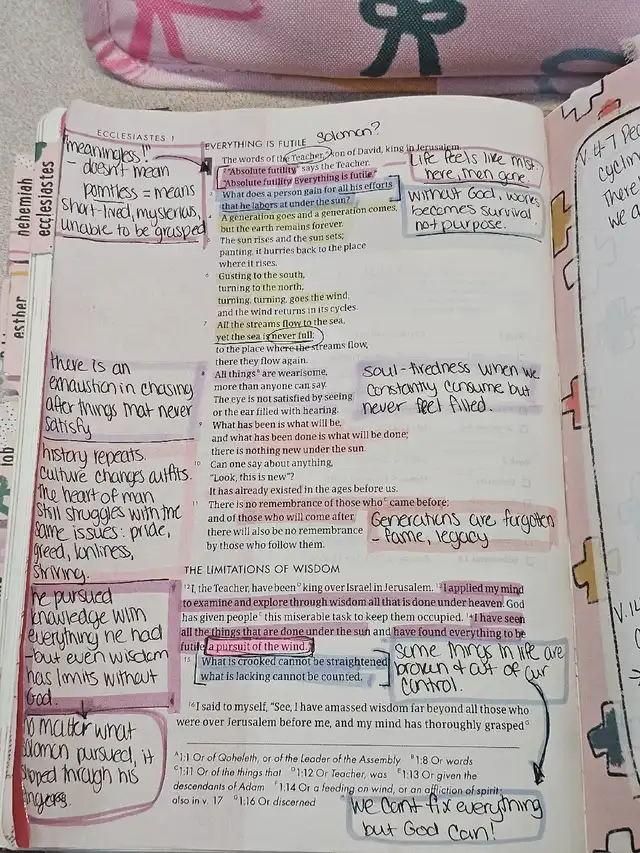 ECCLESIASTES 1
nehemiah
ecclesiastes
esther
job
"meaningless!"
- doesn't mean
pointless = means
short-lived, mysterious,
unable to be grasped
there is an
exhaustion in chasing
after things that never
satisfy
history repeats.
culture changes outfits.
The heart of man
still struggles with the
same issues: pride,
greed, lonliness,
striving.
he pursued
knowledge with
everything he had
-but even wisdom
has limits without
God.
no matter what
solomon pursued, it
slipped through his
fingers.
EVERYTHING IS FUTILE
Solomon?
The words of the Teacher, son of David, king in Jerusalem.
"Absolute futility," says the Teacher.
"Absolute futility. Everything is futile."
What does a person gain for all his efforts
that he labors at under the sun?
A generation goes and a generation comes,
but the earth remains forever.
The sun rises and the sun sets;
panting, it hurries back to the place
where it rises.
6 Gusting to the south,
turning to the north,
turning, turning, goes the wind,
and the wind returns in its cycles.
7 All the streams flow to the sea,
yet the sea is never full;
to the place where the streams flow,
there they flow again.
8 All things A are wearisome,
more than anyone can say.
The eye is not satisfied by seeing
or the ear filled with hearing.
9 What has been is what will be,
and what has been done is what will be done;
there is nothing new under the sun.
10 Can one say about anything,
"Look, this is new"?
It has already existed in the ages before us.
11 There is no remembrance of those who C came before;
and of those who will come after
there will also be no remembrance
by those who follow them.
Life feels like mist.
here, then gone.
without God, works
becomes survival
not purpose.
soul-tiredness when we
constantly consume but
never feel filled.
Generations are forgotten
- fame, legacy
THE LIMITATIONS OF WISDOM
12 I, the Teacher, have been D king over Israel in Jerusalem. 13 I applied my mind
to examine and explore through wisdom all that is done under heaven. God
has given people E this miserable task to keep them occupied. 14 I have seen
all the things that are done under the sun and have found everything to be
futile, a pursuit of the wind.
15 What is crooked cannot be straightened;
what is lacking cannot be counted.
some things in life are
broken & out of our
control.
16 I said to myself, "See, I have amassed wisdom far beyond all those who
were over Jerusalem before me, and my mind has thoroughly grasped G
A 1:1 Or of Qoheleth, or of the Leader of the Assembly B 1:8 Or words
C 1:11 Or of the things that D 1:12 Or Teacher, was E 1:13 Or given the
descendants of Adam F 1:14 Or a feeding on wind, or an affliction of spirit;
also in v. 17 G 1:16 Or discerned
we cant fix everything
but God can!
V. 4-7
cyclin
There
we a
V. 14